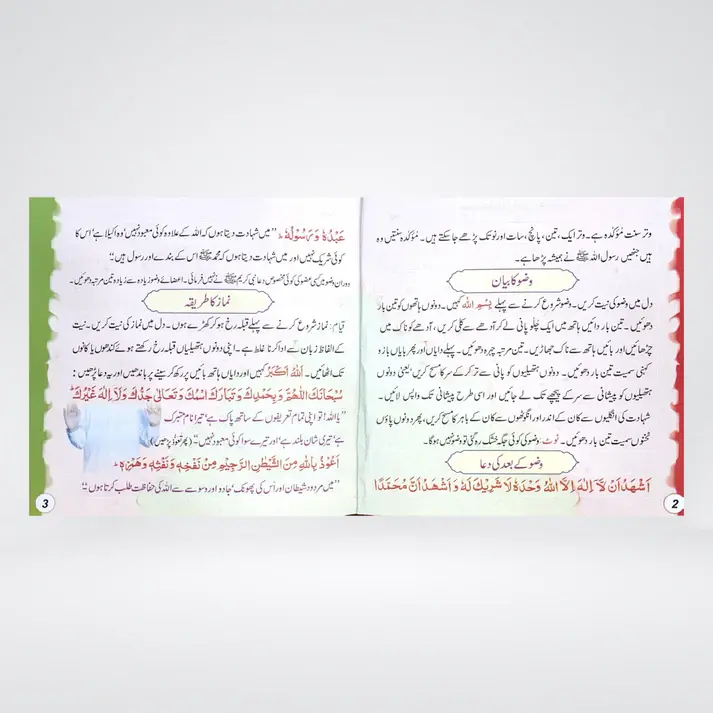 وتر سنت مؤکدہ ہے۔ وتر ایک، تین، پانچ، سات اور نو تک پڑھے جا سکتے ہیں۔ مؤکدہ سنتیں وہ
ہیں جنھیں رسول اللہ ﷺ نے ہمیشہ پڑھا ہے۔
وضو کا بیان
دل میں وضو کی نیت کریں۔ وضو شروع کرنے سے پہلے بِسْمِ اللہ کہیں۔ دونوں ہاتھوں کو تین بار
دھوئیں۔ تین بار دائیں ہاتھ میں ایک چلّو پانی لے کر آدھے سے کلی کریں، آدھے کو ناک میں
چڑھائیں اور بائیں ہاتھ سے ناک جھاڑیں۔ تین مرتبہ چہرہ دھوئیں۔ پہلے دایاں اور پھر بایاں بازو
کہنی سمیت تین بار دھوئیں۔ دونوں ہتھیلیوں کو پانی سے تر کر کے سر کا مسح کریں یعنی دونوں
ہتھیلیوں کو پیشانی سے سر کے پیچھے تک لے جائیں اور اسی طرح پیشانی تک واپس لائیں۔
شہادت کی انگلیوں سے کان کے اندر اور انگوٹھوں سے کان کے باہر کا مسح کریں، پھر دونوں پاؤں
ٹخنوں سمیت تین بار دھوئیں۔ نوٹ: وضو کی کوئی جگہ خشک رہ گئی تو وضو نہیں ہوگا۔
وضو کے بعد کی دعا
اَشْهَدُ اَنْ لَّا اِلٰهَ اِلَّا اللّٰهُ وَحْدَهٗ لَا شَرِيْكَ لَهٗ وَ اَشْهَدُ اَنَّ مُحَمَّدًا
2
عَبْدُهٗ وَ رَسُوْلُهٗ۔ ”میں شہادت دیتا ہوں کہ اللہ کے علاوہ کوئی معبود نہیں‘ وہ اکیلا ہے‘ اس کا
کوئی شریک نہیں اور میں شہادت دیتا ہوں کہ محمد ﷺ اس کے بندے اور رسول ہیں۔“
دوران وضو میں کسی عضو کی کوئی مخصوص دعا نبی کریم ﷺ نے نہیں فرمائی۔ اعضائے وضو زیادہ سے زیادہ تین مرتبہ دھوئیں۔
نماز کا طریقہ
قیام: نماز شروع کرنے سے پہلے قبلہ رخ ہو کر کھڑے ہوں۔ دل میں نماز کی نیت کریں۔ نیت
کے الفاظ زبان سے ادا کرنا غلط ہے۔ اپنی دونوں ہتھیلیاں قبلہ رخ رکھتے ہوئے کندھوں یا کانوں
تک اٹھائیں۔ اَللّٰهُ اَكْبَرُ کہیں اور دایاں ہاتھ بائیں پر رکھ کر سینے پر باندھیں اور یہ دعا پڑھیں:
سُبْحَانَكَ اللّٰهُمَّ وَ بِحَمْدِكَ وَ تَبَارَكَ اسْمُكَ وَ تَعَالٰى جَدُّكَ وَ لَآ اِلٰهَ غَيْرُكَ
”یا اللہ! تو اپنی تمام تعریفوں کے ساتھ پاک ہے‘ تیرا نام متبرک
ہے‘ تیری شان بلند ہے‘ اور تیرے سوا کوئی معبود نہیں۔“ (پھر تعوذ پڑھیں)
اَعُوْذُ بِاللّٰهِ مِنَ الشَّيْطٰنِ الرَّجِيْمِ مِنْ نَفْخِهٖ وَ نَفْثِهٖ وَ هَمْزِهٖ
”میں مردود شیطان اور اُس کی پھونک‘ جادو اور وسوسے سے اللہ کی حفاظت طلب کرتا ہوں۔“
3